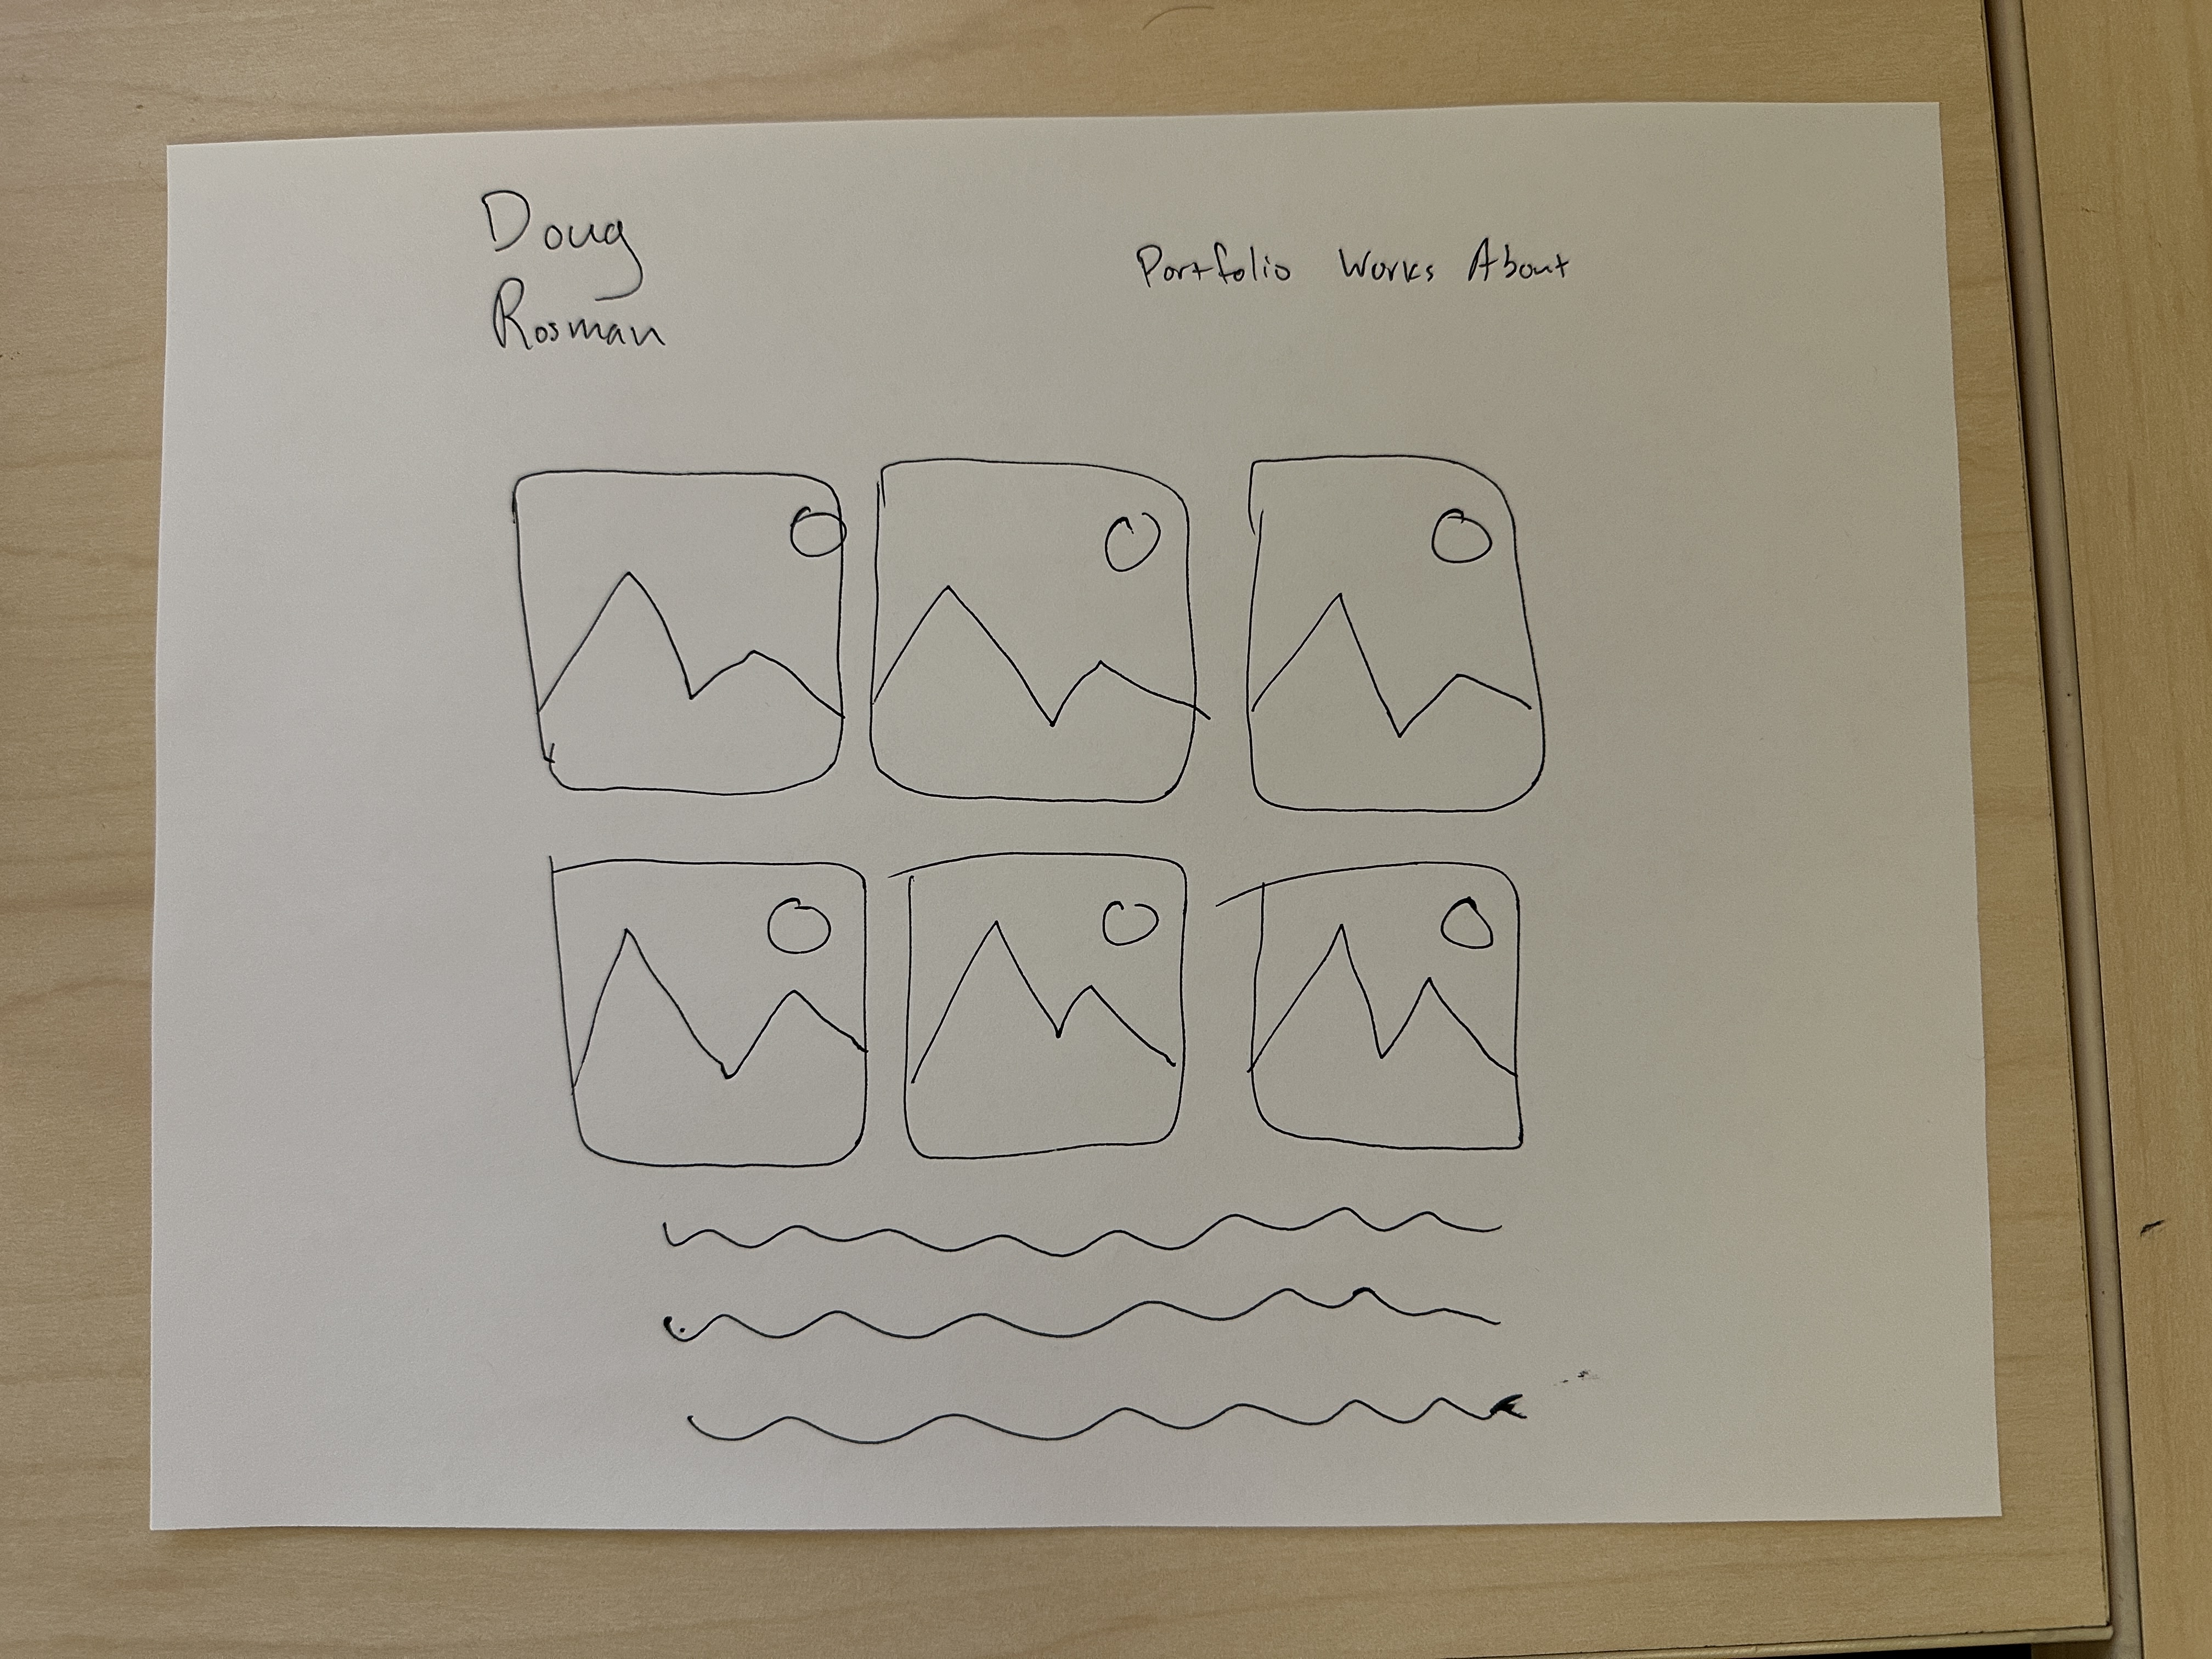 Doug
Rosman
Portfolio Works About